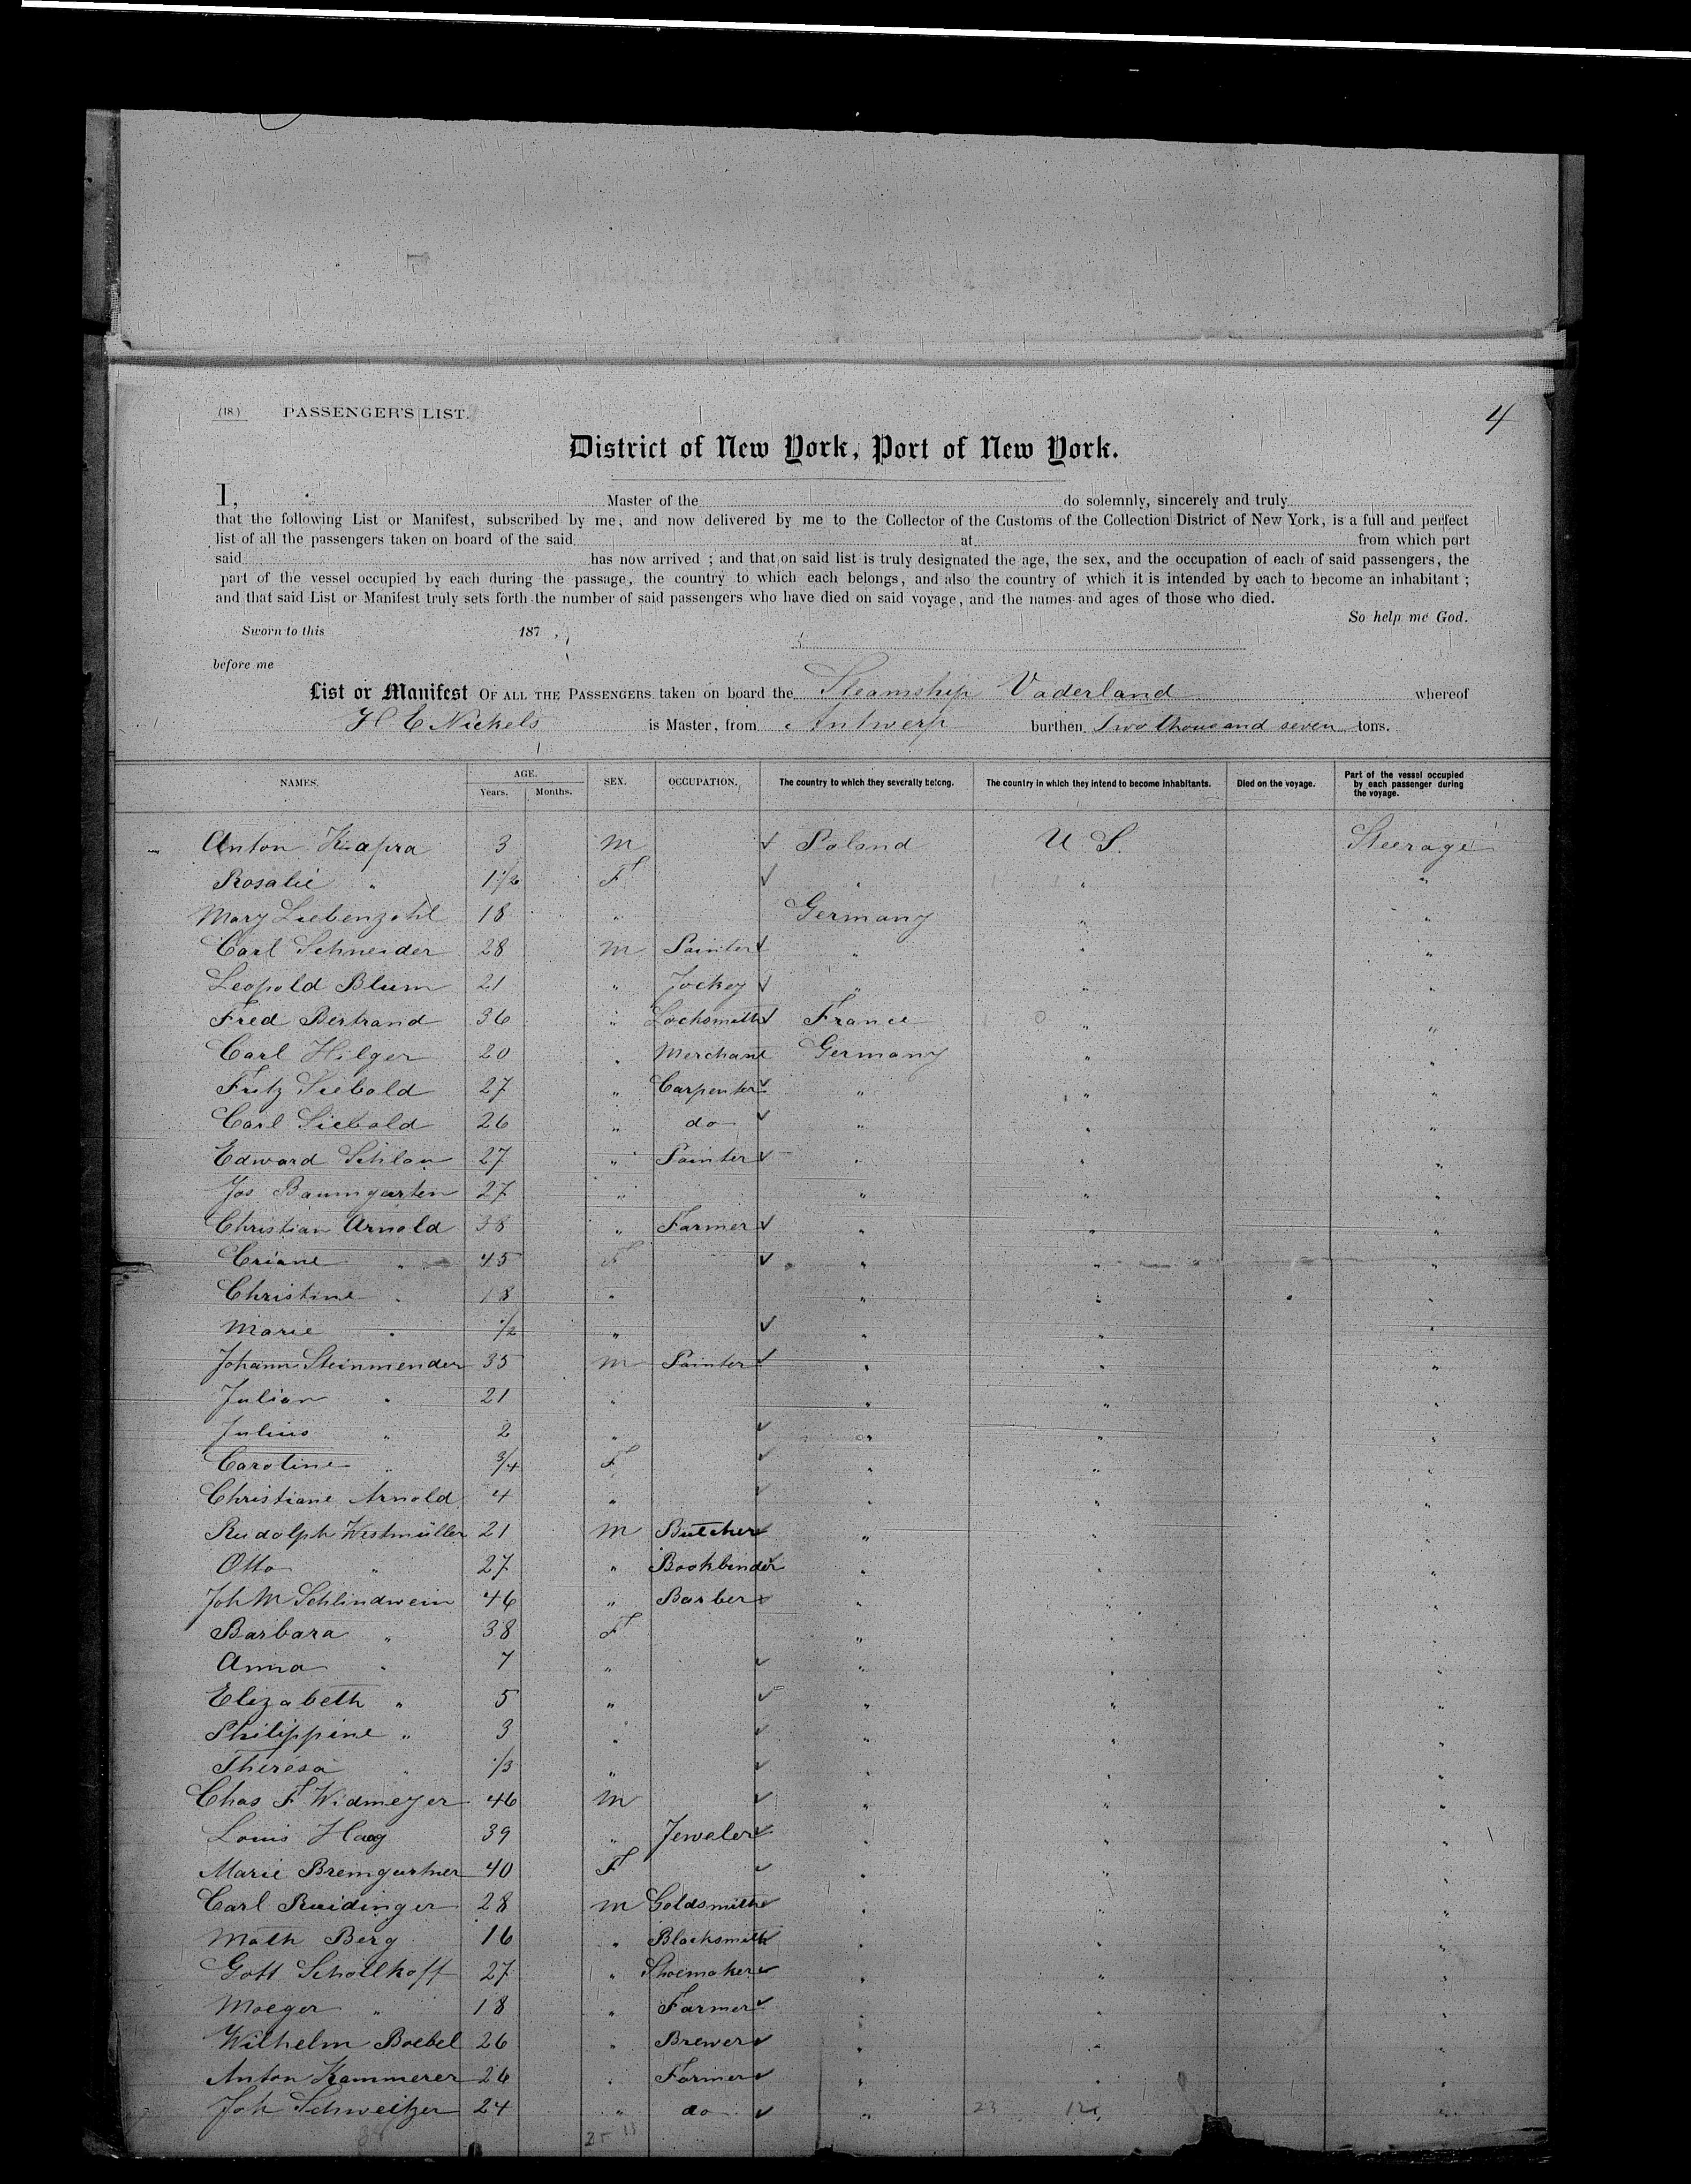 (18.) PASSENGER'S LIST. 4
District of New York, Port of New York.
I, Master of the do solemnly, sincerely and truly
that the following List or Manifest, subscribed by me, and now delivered by me to the Collector of the Customs of the Collection District of New York, is a full and perfect
list of all the passengers taken on board of the said at from which port
said has now arrived ; and that on said list is truly designated the age, the sex, and the occupation of each of said passengers, the
part of the vessel occupied by each during the passage, the country to which each belongs, and also the country of which it is intended by each to become an inhabitant ;
and that said List or Manifest truly sets forth the number of said passengers who have died on said voyage, and the names and ages of those who died.
So help me God.
Sworn to this 187 ,
before me
List or Manifest OF ALL THE PASSENGERS taken on board the Steamship Vaderland whereof
H E Nickels is Master, from Antwerp burthen Two thousand seven tons.
NAMES. AGE. Years. Months. SEX. OCCUPATION. The country to which they severally belong. The country in which they intend to become inhabitants. Died on the voyage. Part of the vessel occupied by each passenger during the voyage.
Anton Kapra 3 M ✓ Poland U S. Steerage
Rosalie " 1 1/2 F ✓ " " "
Mary Liebenzahl 18 " Germany " "
Carl Schneider 28 M Painter ✓ " " "
Leopold Blum 21 " Jockey ✓ " " "
Fred Bertrand 36 " Locksmith ✓ France " "
Carl Hilger 20 " Merchant Germany " "
Fritz Siebold 27 " Carpenter ✓ " " "
Carl Siebold 26 " do ✓ " " "
Edward Schlau 27 " Painter ✓ " " "
Jos. Baumgarten 27 " " " "
Christian Arnold 38 " Farmer ✓ " " "
Criane " 45 F ✓ " " "
Christine " 18 " " " "
Marie " 1/2 " ✓ " " "
Johann Steinmender 35 M Painter ✓ " " "
Julian " 21 " " " "
Julius " 2 " ✓ " " "
Caroline " 3/4 F ✓ " " "
Christiane Arnold 4 " ✓ " " "
Rudolph Westmüller 21 M Butcher ✓ " " "
Otto " 27 " Bookbinder ✓ " " "
Joh M Schlindwein 46 " Barber ✓ " " "
Barbara " 38 F " " "
Anna " 7 " ✓ " " "
Elizabeth " 5 " ✓ " " "
Philippine " 3 " ✓ " " "
Theresa " 1/3 " ✓ " " "
Chas F Widmeyer 46 M ✓ " " "
Louis Haag 39 " Jeweler ✓ " " "
Marie Bremgartner 40 F ✓ " " "
Carl Ruidinger 28 M Goldsmith ✓ " " "
Math Berg 16 " Blacksmith ✓ " " "
Gott Schollkoff 27 " Shoemaker ✓ " " "
Moeger " 18 " Farmer ✓ " " "
Wilhelm Boebel 26 " Brewer ✓ " " "
Anton Kammerer 26 " Farmer ✓ " " "
Joh Schweitzer 24 " do ✓ " " "